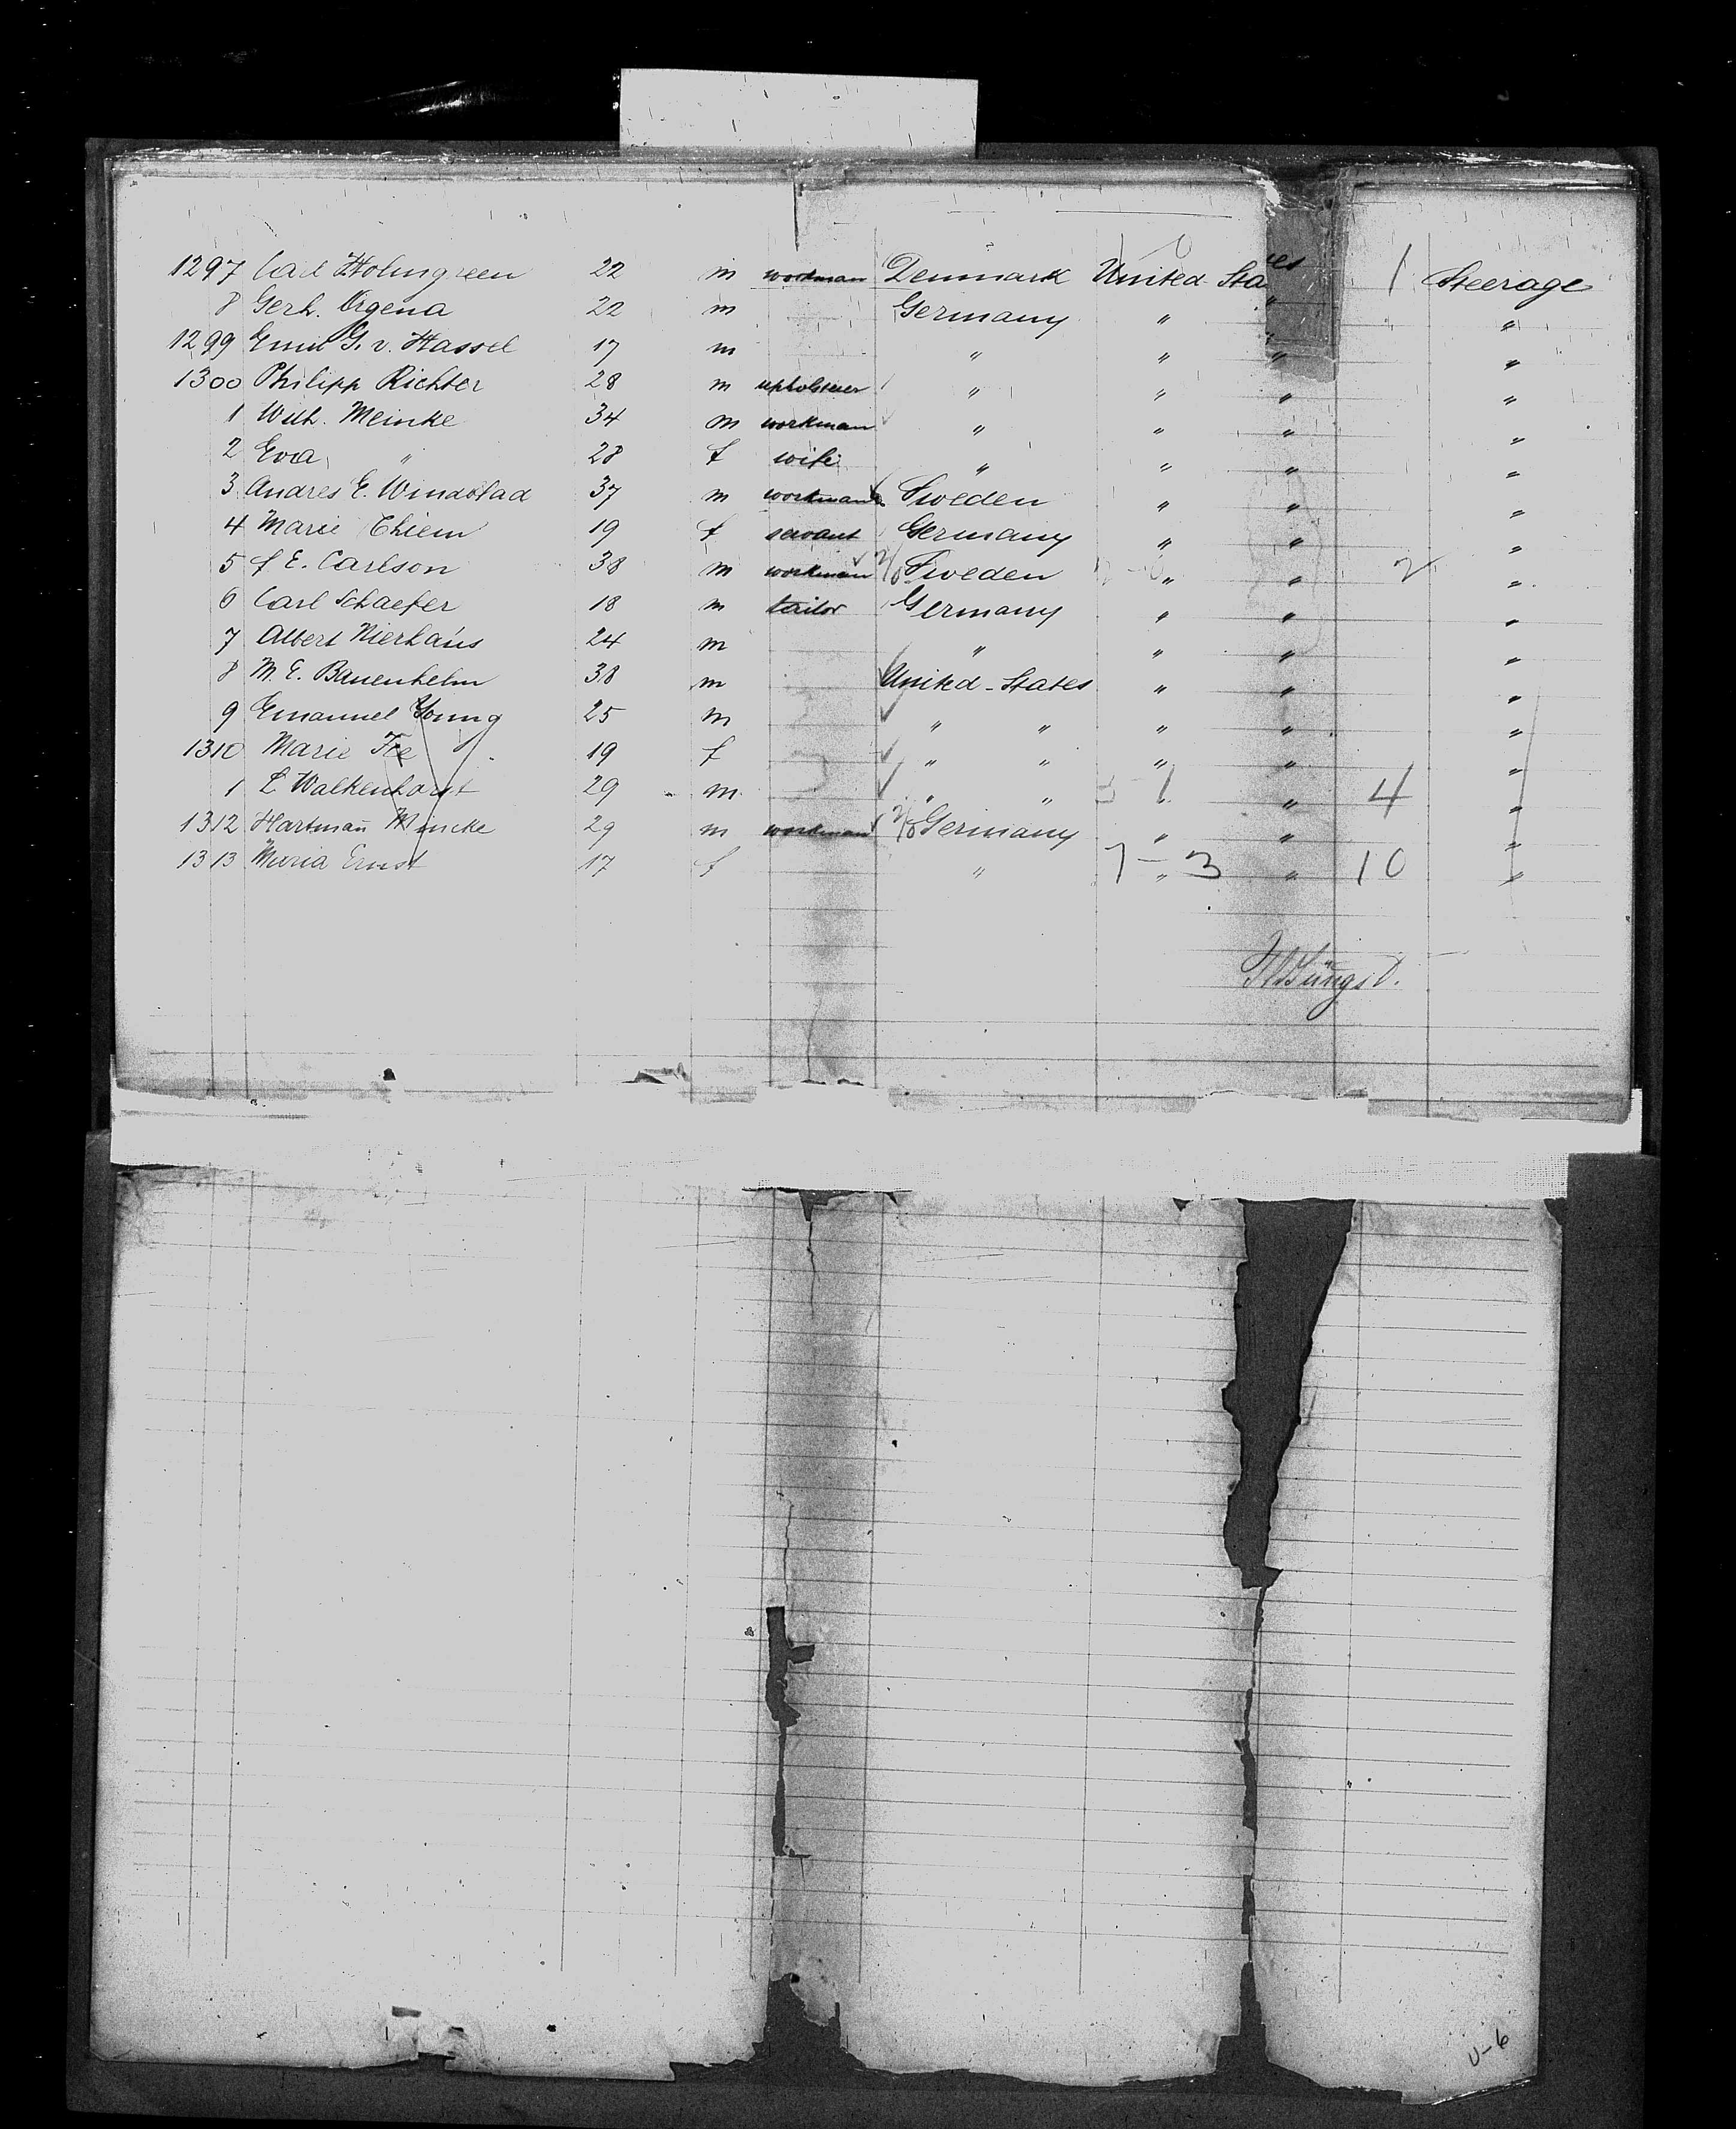 1297 Carl Holmgreen 22 m workman Denmark United States 1 Steerage
8 Gerh. Agena 22 m Germany " " "
1299 Emil G. v. Hassel 17 m " " " "
1300 Philipp Richter 28 m upholsterer " " " "
1 Wilh. Meinke 34 m workman " " " "
2 Eva " 28 f wife " " " "
3 Andres E. Windstad 37 m workman Sweden " " "
4 Marie Thiem 19 f servant Germany " " "
5 J E. Carlson 38 m workman Sweden " " 2 "
6 Carl Schaefer 18 m tailor Germany " " "
7 Albert Nierhaus 24 m " " " "
8 M. E. Bauenhelm 38 m United-States " " "
9 Emanuel Young 25 m " " " " "
1310 Marie 19 f " " " " "
1 L Walkenhorst 29 m " " " 4 "
1312 Hartmañ Mincke 29 m workman Germany " " "
1313 Maria Ernst 17 f " 7-3 " " 10 "
U-6